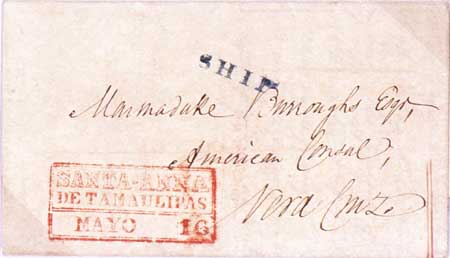 SHIP
Marmaduke Burroughs Esqr,
American Consul,
Vera Cruz.
SANTA-ANNA
DE TAMAULIPAS
MAYO 16